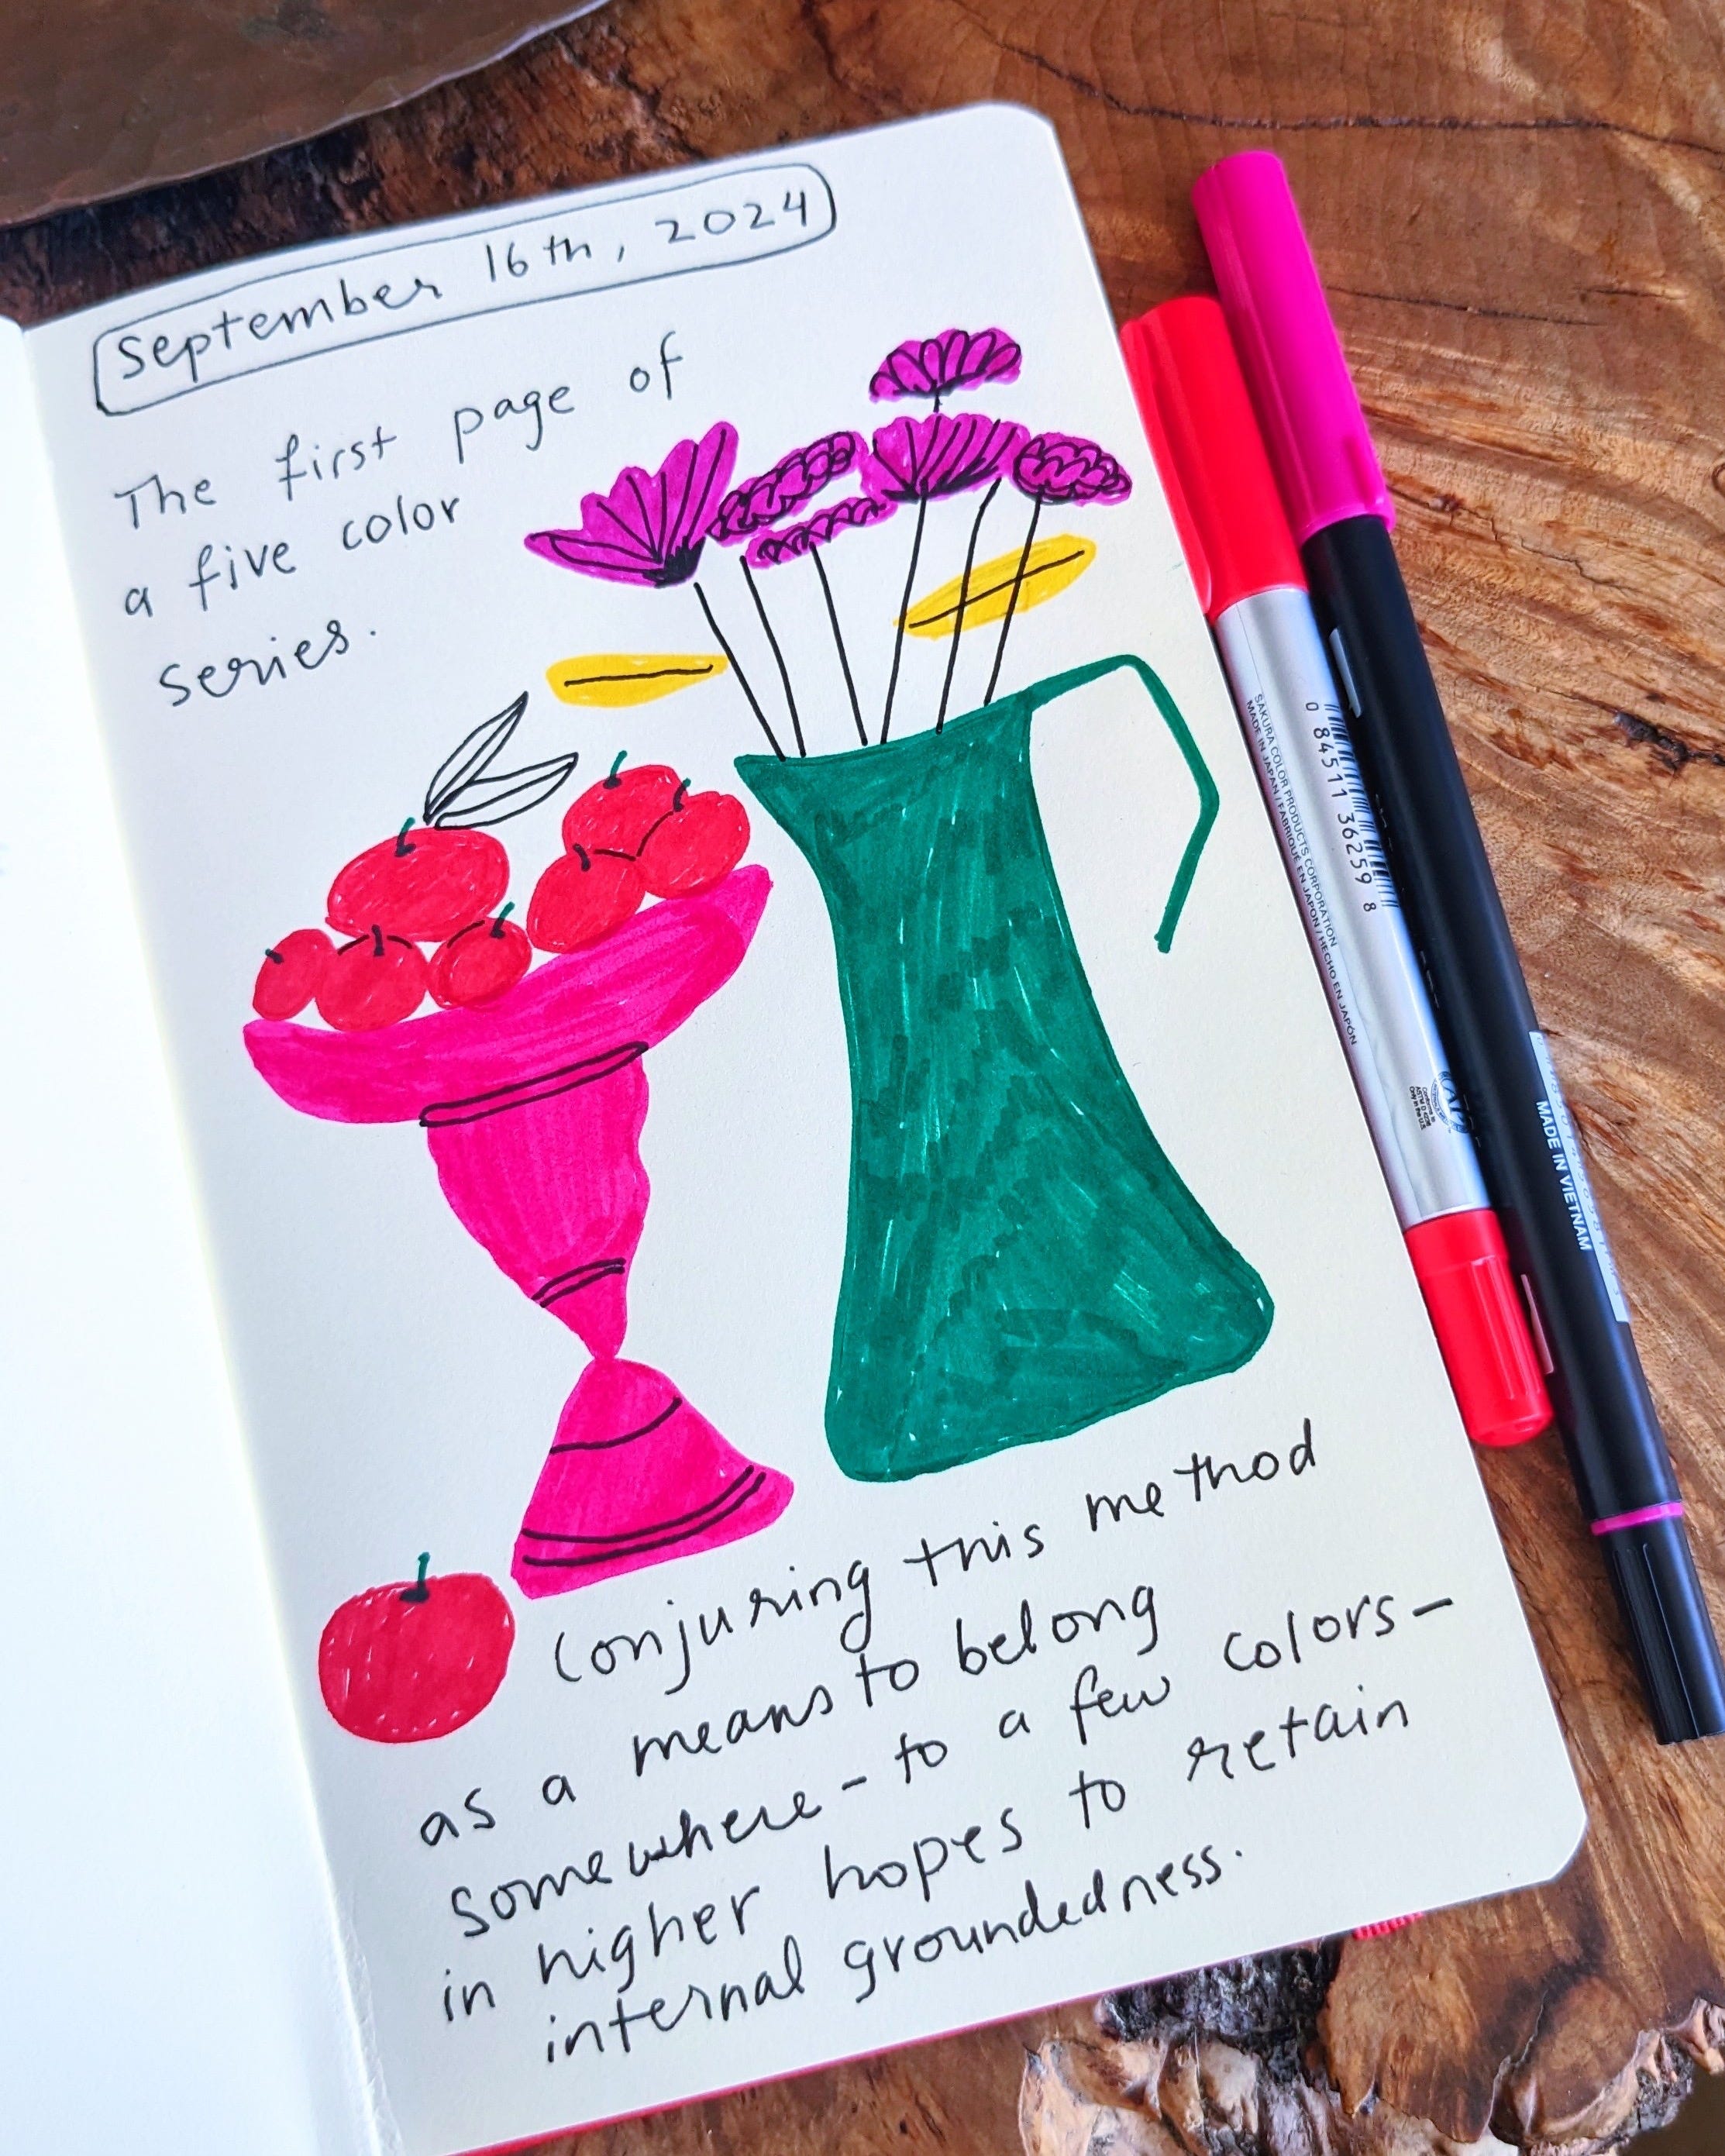 September 16th, 2024
The first page of
a five color
series.
Conjuring this method
as a means to belong
somewhere - to a few colors -
in higher hopes to retain
internal groundedness.
SAKURA COLOR PRODUCTS CORPORATION
MADE IN JAPAN / FABRIQUÉ EN JAPON / HECHO EN JAPÓN
0 84511 36259 8
MADE IN VIETNAM